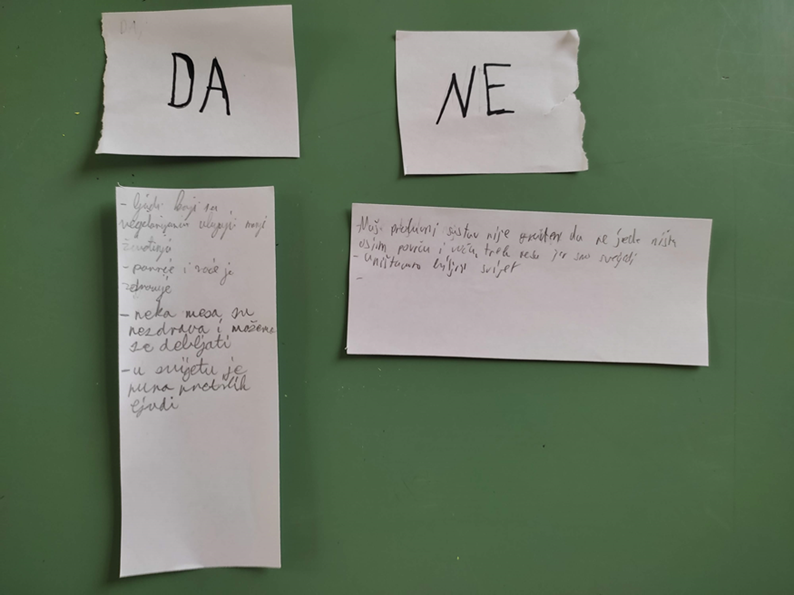 DA
NE
- ljudi koji su
vegetarijanci ubijaju manje
životinja
- povrće i voće je
zdravije
- neka mesa su
nezdrava i možemo
se debljati
- u svijetu je
puna pretilih
ljudi
Naši probavni sustav nije da ne jede ništa
osim povrća i voća, treba meso jer smo svejedi
- Uništavamo biljni svijet
-